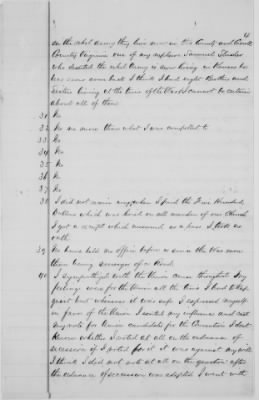 4
in the rebel army they live now in this County and
County Virginia one of my nephews Samuel
who deserted the rebel Army is now living in Kansas
has since come back I think I had eight Brothers and
Sisters living at the time of the War I cannot be certain
about all of them
31 No
32 No no more than what I was compelled to
33 No
34 No
35 No
36 No
37 No
38 I did not again any when I paid the Five Hundred
Dollars which was levied on all members of our Church
I got a receipt which released me from I took no
oath
39 No have held no office before or since the War more
than being surveyor of a Road.
40 I sympathized with the Union cause throughout my
feelings were for the Union all the time I had to keep
quiet but whenever it was safe I expressed myself
in favor of the Union I exerted my influence and cast
my vote for Union candidates for the Convention I dont
know whether I voted at all on the ordinance of
secession if I voted for it it was against my will
I think I did not vote at all on the question after
the ordinance of secession was adopted I went with